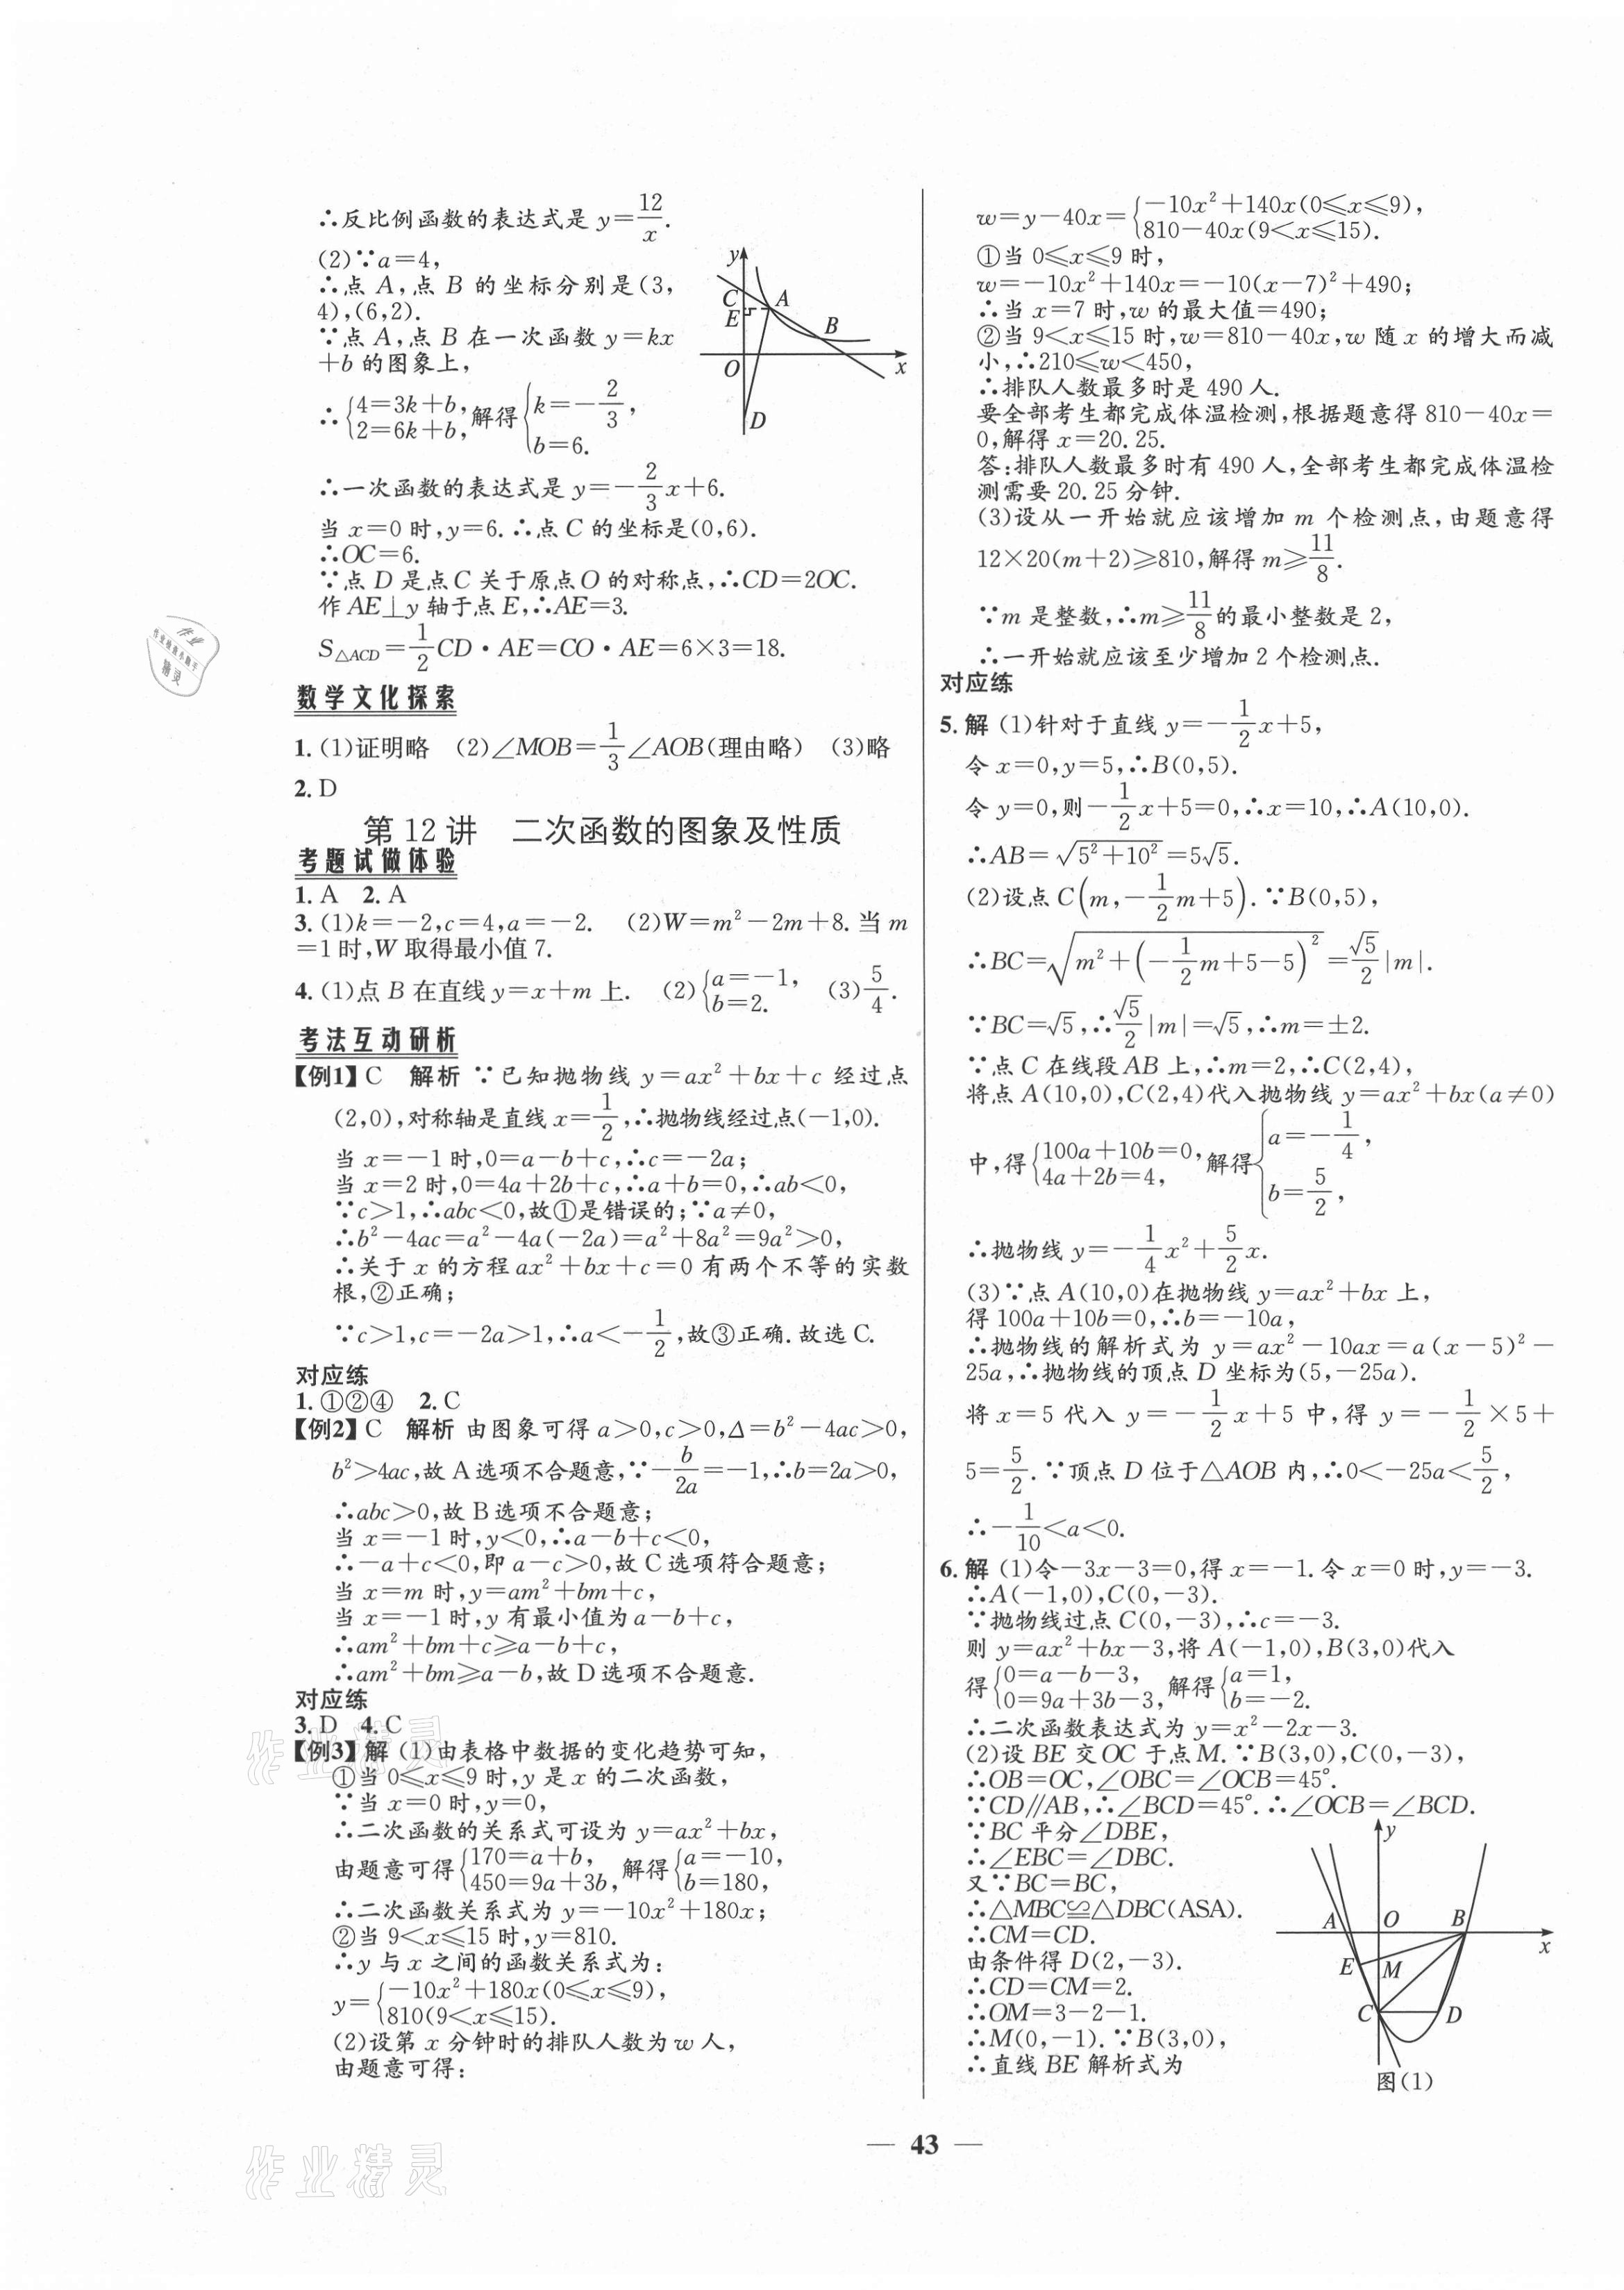 ∴反比例函数的表达式是 y=12/x.
(2)∵a=4,
∴点 A,点 B 的坐标分别是(3,
4),(6,2).
∵点 A,点 B 在一次函数 y=kx
+b 的图象上,
∴{4=3k+b, 2=6k+b, 解得{k=-2/3, b=6.
∴一次函数的表达式是 y=-2/3x+6.
当 x=0 时,y=6.∴点 C 的坐标是(0,6).
∴OC=6.
∵点 D 是点 C 关于原点 O 的对称点,∴CD=2OC.
作 AE⊥y 轴于点 E,∴AE=3.
S△ACD=1/2CD·AE=CO·AE=6×3=18.
y
C
E
A
B
O
x
D
数学文化探索
1.(1)证明略 (2)∠MOB=1/3∠AOB(理由略) (3)略
2.D
第 12 讲 二次函数的图象及性质
考题试做体验
1.A 2.A
3.(1)k=-2,c=4,a=-2. (2)W=m²-2m+8.当 m
=1时,W 取得最小值 7.
4.(1)点 B 在直线 y=x+m 上. (2){a=-1, b=2. (3)5/4.
考法互动研析
【例1】C 解析 ∵已知抛物线 y=ax²+bx+c 经过点
(2,0),对称轴是直线 x=1/2,∴抛物线经过点(-1,0).
当 x=-1 时,0=a-b+c,∴c=-2a;
当 x=2 时,0=4a+2b+c,∴a+b=0,∴ab<0,
∵c>1,∴abc<0,故①是错误的;∵a≠0,
∴b²-4ac=a²-4a(-2a)=a²+8a²=9a²>0,
∴关于 x 的方程 ax²+bx+c=0 有两个不等的实数
根,②正确;
∵c>1,c=-2a>1,∴a<-1/2,故③正确.故选 C.
对应练
1.①②④ 2.C
【例2】C 解析 由图象可得 a>0,c>0,Δ=b²-4ac>0,
b²>4ac,故 A 选项不合题意,∵-b/2a=-1,∴b=2a>0,
∴abc>0,故 B 选项不合题意;
当 x=-1 时,y<0,∴a-b+c<0,
∴-a+c<0,即 a-c>0,故 C 选项符合题意;
当 x=m 时,y=am²+bm+c,
当 x=-1 时,y 有最小值为 a-b+c,
∴am²+bm+c≥a-b+c,
∴am²+bm≥a-b,故 D 选项不合题意.
对应练
3.D 4.C
【例3】解 (1)由表格中数据的变化趋势可知,
①当 0≤x≤9 时,y 是 x 的二次函数,
∵当 x=0 时,y=0,
∴二次函数的关系式可设为 y=ax²+bx,
由题意可得{170=a+b, 450=9a+3b, 解得{a=-10, b=180,
∴二次函数关系式为 y=-10x²+180x;
②当 9<x≤15 时,y=810.
∴y 与 x 之间的函数关系式为:
y={-10x²+180x(0≤x≤9), 810(9<x≤15).
(2)设第 x 分钟时的排队人数为 w 人,
由题意可得:
w=y-40x={-10x²+140x(0≤x≤9), 810-40x(9<x≤15).
①当 0≤x≤9 时,
w=-10x²+140x=-10(x-7)²+490;
∴当 x=7 时,w 的最大值=490;
②当 9<x≤15 时,w=810-40x,w 随 x 的增大而减
小,∴210≤w<450,
∴排队人数最多时是 490 人.
要全部考生都完成体温检测,根据题意得 810-40x=
0,解得 x=20.25.
答:排队人数最多时有 490 人,全部考生都完成体温检
测需要 20.25 分钟.
(3)设从一开始就应该增加 m 个检测点,由题意得
12×20(m+2)≥810,解得 m≥11/8.
∵m 是整数,∴m≥11/8的最小整数是 2,
∴一开始就应该至少增加 2 个检测点.
对应练
5.解 (1)针对于直线 y=-1/2x+5,
令 x=0,y=5,∴B(0,5).
令 y=0,则-1/2x+5=0,∴x=10,∴A(10,0).
∴AB=√(5²+10²)=5√5.
(2)设点 C(m,-1/2m+5).∵B(0,5),
∴BC=√(m²+(-1/2m+5-5)²)=√5/2|m|.
∵BC=√5,∴√5/2|m|=√5,∴m=±2.
∵点 C 在线段 AB 上,∴m=2,∴C(2,4),
将点 A(10,0),C(2,4)代入抛物线 y=ax²+bx(a≠0)
中,得{100a+10b=0, 4a+2b=4, 解得{a=-1/4, b=5/2,
∴抛物线 y=-1/4x²+5/2x.
(3)∵点 A(10,0)在抛物线 y=ax²+bx 上,
得 100a+10b=0,∴b=-10a,
∴抛物线的解析式为 y=ax²-10ax=a(x-5)²-
25a,∴抛物线的顶点 D 坐标为(5,-25a).
将 x=5 代入 y=-1/2x+5 中,得 y=-1/2×5+
5=5/2.∵顶点 D 位于△AOB 内,∴0<-25a<5/2,
∴-1/10<a<0.
6.解 (1)令-3x-3=0,得 x=-1.令 x=0 时,y=-3.
∴A(-1,0),C(0,-3).
∵抛物线过点 C(0,-3),∴c=-3.
则 y=ax²+bx-3,将 A(-1,0),B(3,0)代入
得{0=a-b-3, 0=9a+3b-3, 解得{a=1, b=-2.
∴二次函数表达式为 y=x²-2x-3.
(2)设 BE 交 OC 于点 M.∵B(3,0),C(0,-3),
∴OB=OC,∠OBC=∠OCB=45°.
∵CD∥AB,∴∠BCD=45°.∴∠OCB=∠BCD.
∵BC 平分∠DBE,
∴∠EBC=∠DBC.
又∵BC=BC,
∴△MBC≌△DBC(ASA).
∴CM=CD.
由条件得 D(2,-3).
∴CD=CM=2.
∴OM=3-2-1.
∴M(0,-1).∵B(3,0),
∴直线 BE 解析式为
y
A
O
B
x
E
M
C
D
图(1)
— 43 —
作业精灵
作业精灵
作业
作业检查小助手
精灵